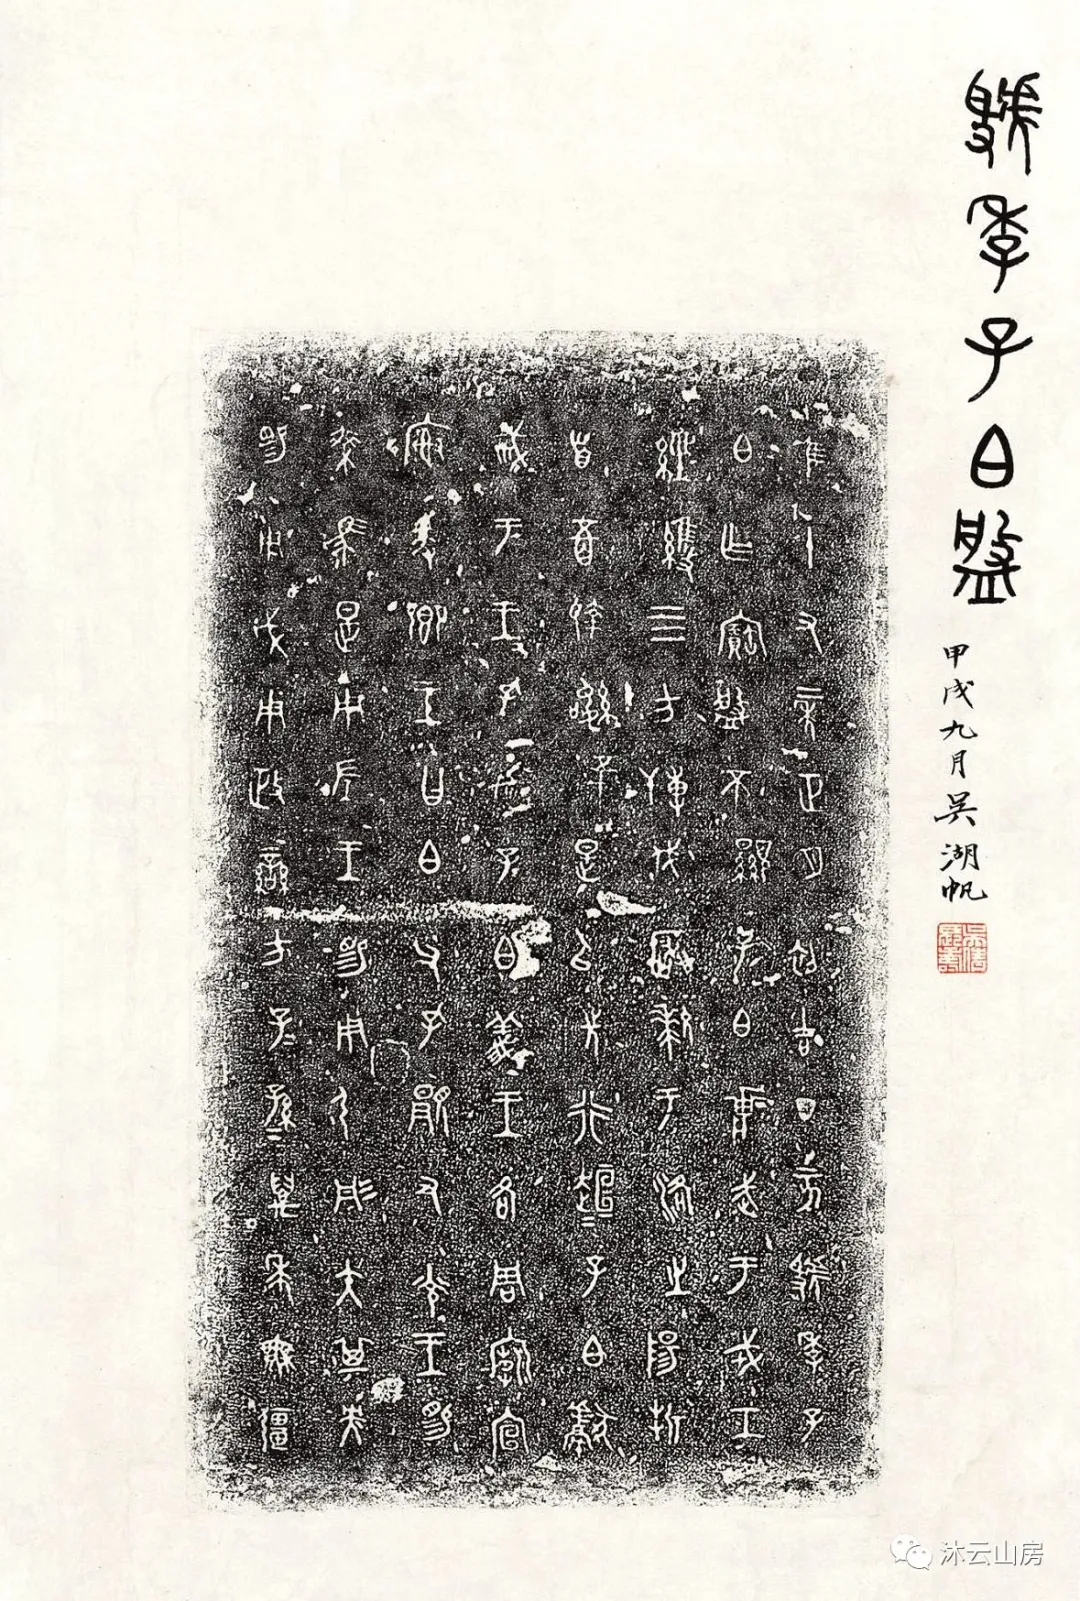 虢季子白盤
甲戌九月吳湖帆
隹十又二年正月初吉丁亥虢季子
白乍寶盤不顯子白𤕌武于戎工
經維四方搏伐玁狁于洛之陽折
首五百執訊五十是以先行桓桓子白獻
馘于王王孔加子白義王各周廟宣
榭爰鄉王曰白父孔䫉又光王賜
乘馬是用左王賜用弓彤矢其央
賜用戉用政蠻方子子孫孫萬年無疆
沐云山房